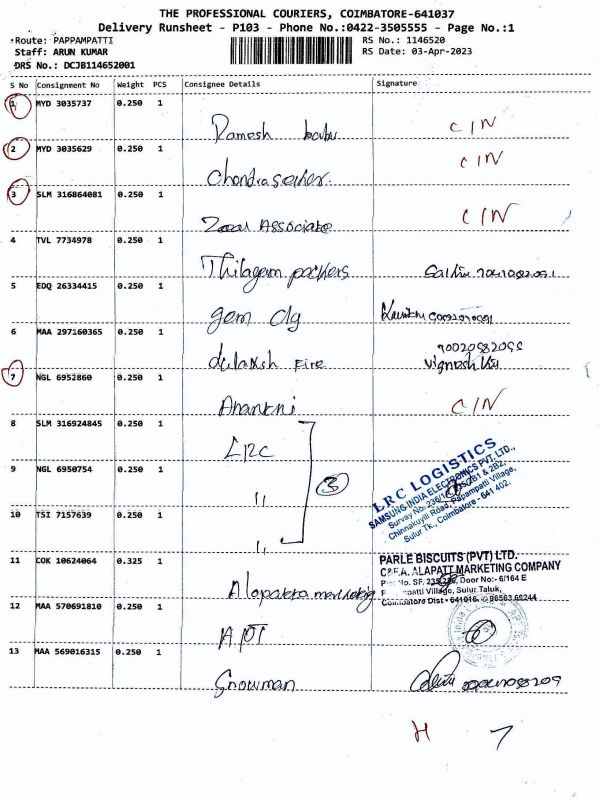 THE PROFESSIONAL COURIERS, COIMBATORE-641037
Delivery Runsheet - P103 - Phone No.:0422-3505555 - Page No.:1
Route: PAPPAMPATTI
RS No.: 1146520
Staff: ARUN KUMAR
RS Date: 03-Apr-2023
DRS No.: DCJB114652001
S No Consignment No Weight PCS Consignee Details Signature
1 MYD 3035737 0.250 1
Ramesh babu C/N
2 MYD 3035629 0.250 1
Chandrasekar C/N
3 SLM 316864081 0.250 1
Associate C/N
4 TVL 7734978 0.250 1
Thilagam packers
5 EDQ 26334415 0.250 1
gem
6 MAA 297160365 0.250 1
Fire
7 NGL 6952860 0.250 1
C/N
8 SLM 316924845 0.250 1
LRC
9 NGL 6950754 0.250 1
"
10 TSI 7157639 0.250 1
"
3
LRC LOGISTICS
SAMSUNG INDIA ELECTRONICS PVT. LTD.,
Chinnakuyili Road, Papampatti Village,
Sulur Tk., Coimbatore - 641 402.
11 COK 10624064 0.325 1
PARLE BISCUITS (PVT) LTD.
C&F.A. ALAPATT MARKETING COMPANY
Door No:- 6/164 E
Village, Sulur Taluk,
Coimbatore Dist - 641016.
12 MAA 570691810 0.250 1
APT
13 MAA 569016315 0.250 1
Snowman
H 7